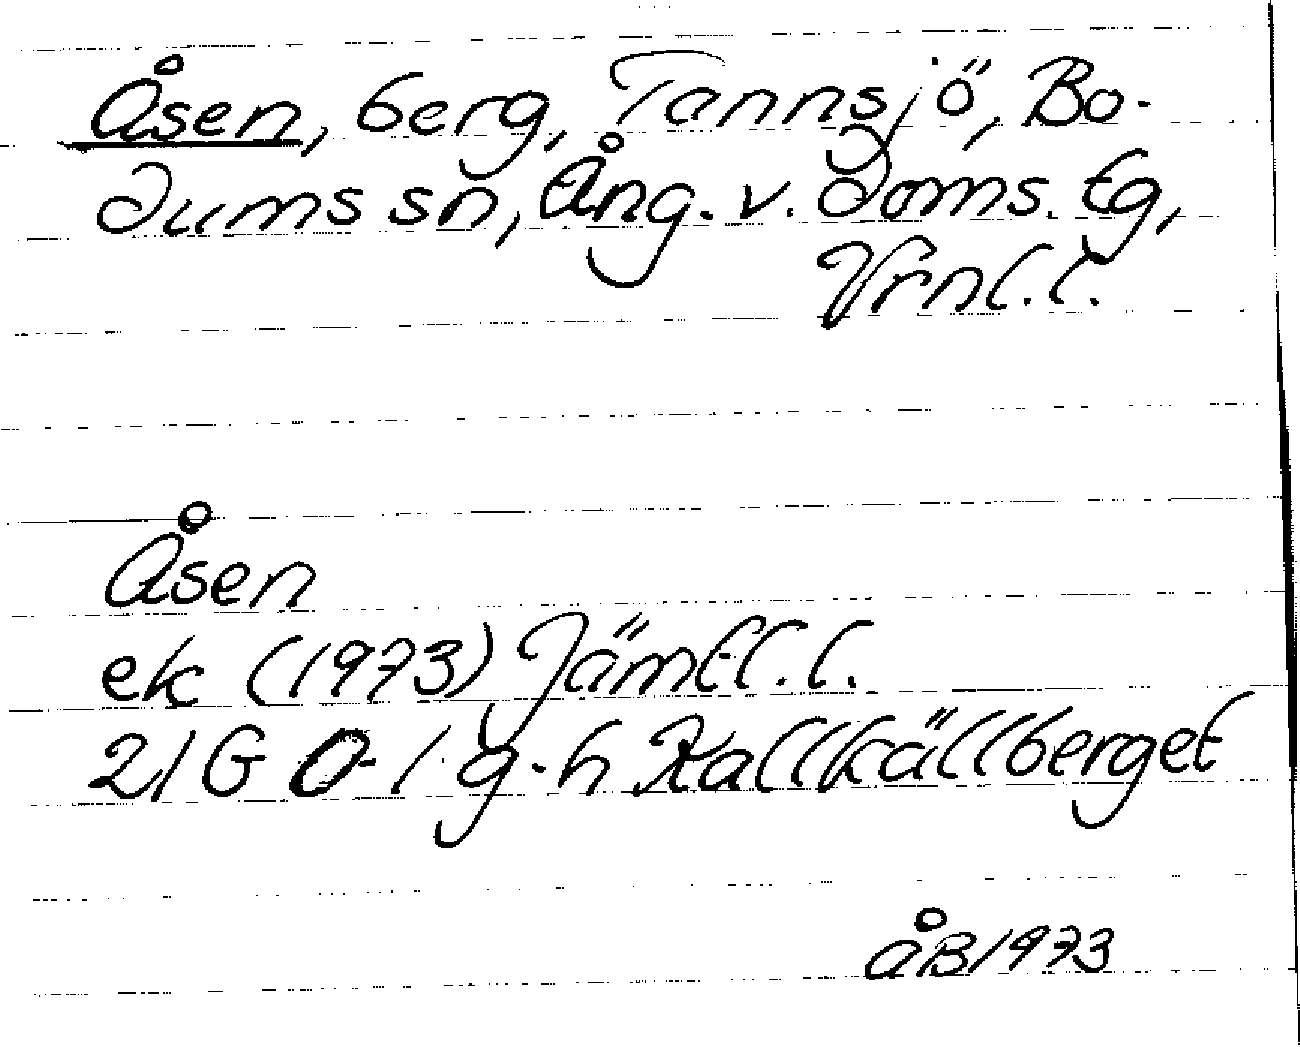 Åsen, berg, Tannsjö, Bo-
dums sn, Ång. v. doms. tg,
Vrnl. l.
Åsen
ek (1973) Jämtl. l.
21G 0-1 g-h Kallkällberget
åB 1973